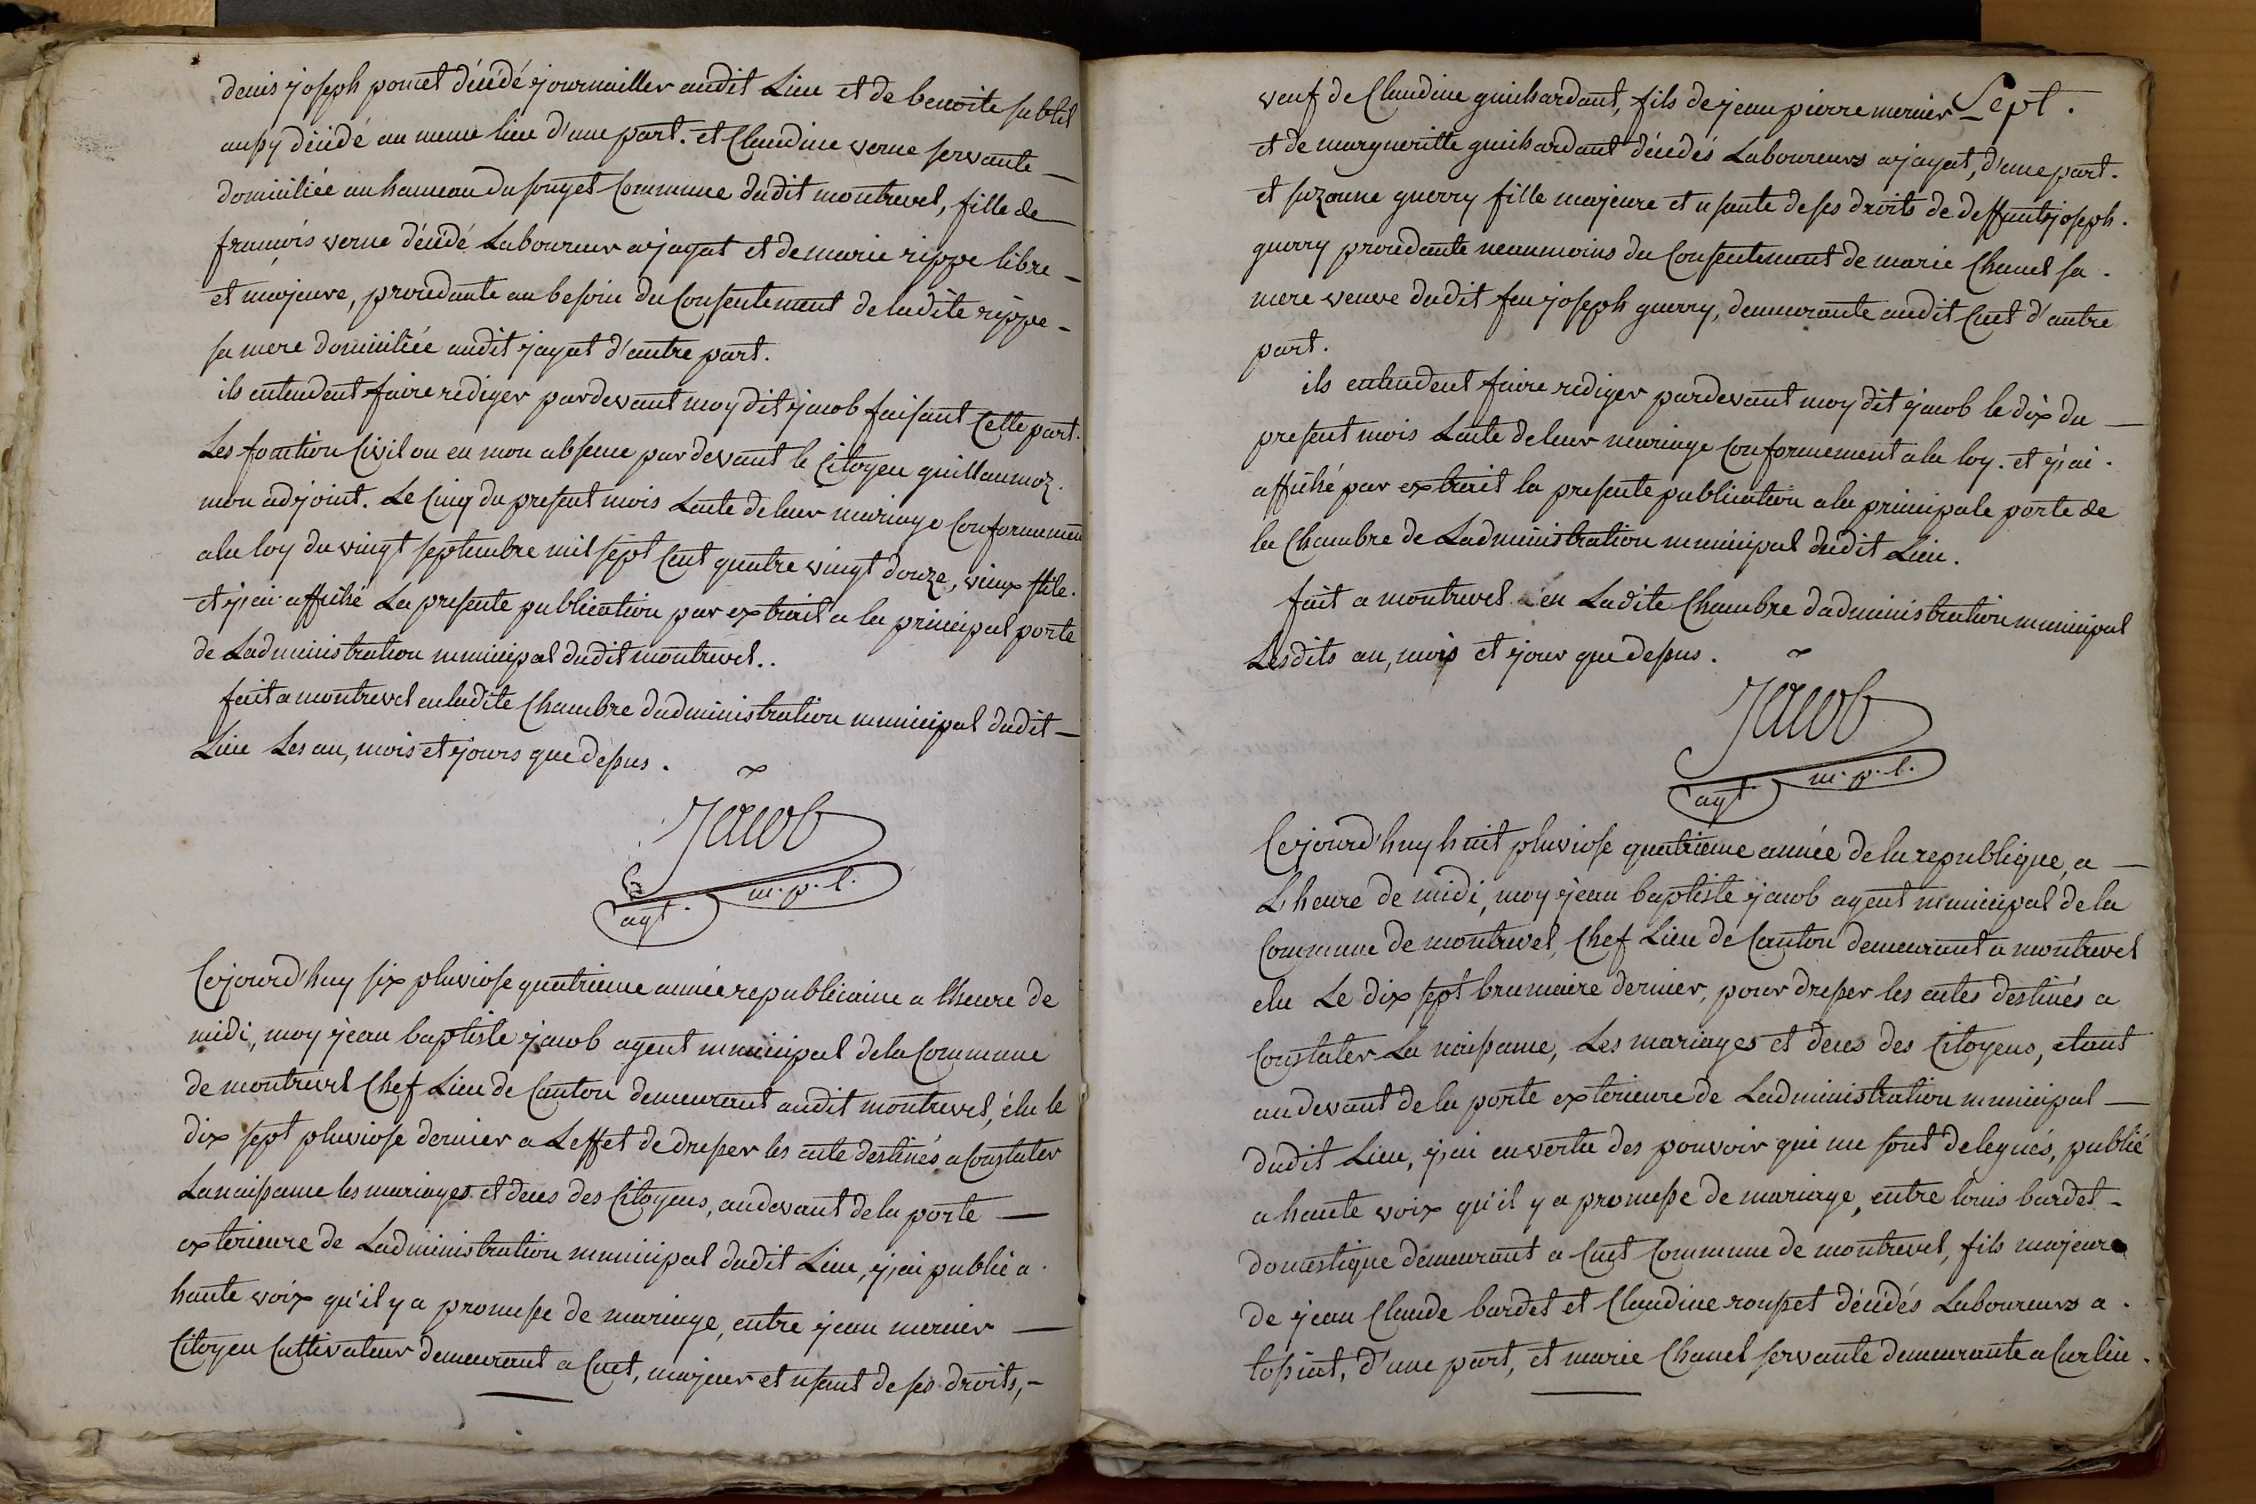 denis joseph poncet décédé journaillier audit Lieu et de benoite subtil
aussy décédé au meme lieu d'une part. et Claudine verne servante
domiciliée au hameau du souget Commune dudit montrevel, fille de
francois verne décédé Laboureur a jayat et de marie rippe libre
et majeure, procedante au besoin du Consentement de ladite rippe
sa mere domiciliée audit jayat d'autre part.
ils entendent faire rediger pardevant moy dit jacob faisant Cette part.
Les fonction Civil ou en mon absence par devant le Citoyen guillaumoz.
mon adjoint. Le Cinq du present mois Lacte de leur mariage Conformement
a la loy du vingt septembre mil sept Cent quatre vingt douze, vieux stile.
et j'ai affiché La presente publication par extrait a la principal porte
de Ladministration municipal dudit montrevel..
fait a montrevel en ladite Chambre dadministration municipal dudit
Lieu Les an, mois et jours que dessus.
Jacob
agt. m.p.l.
Cejourd'huy six pluviose quatrieme année republicaine a lheure de
midi, moy jean baptiste jacob agent municipal de la Commune
de montrevel Chef Lieu de Canton demeurant audit montrevel, élu le
dix sept pluviose dernier a Leffet de dresser les acte destinés a Constater
La naissance les mariages et deces des Citoyens, au devant de la porte
exterieure de Ladministration municipal dudit Lieu, j'ai publié a
haute voix qu'il y a promesse de mariage, entre jean mercier
Citoyen Cultivateur demeurant a Cuet, majeur et usant de ses droits,
Sept.
veuf de Claudine guichardant, fils de jean pierre mercier
et de margueritte guichardant décédés Laboureurs a jayat, d'une part.
et suzanne guerry fille majeure et usante de ses droits de deffunt joseph.
guerry procedante neanmoins du Consentement de marie Chanel sa
mere veuve dudit feu joseph guerry, demeurante audit Cuet d'autre
part.
ils entendent faire rediger pardevant moy dit jacob le dix du
present mois Lacte de leur mariage Conformement a la loy. et j'ai
affiché par extrait la presente publication a la principale porte de
la Chambre de Ladministration municipal dudit Lieu.
fait a montrevel en Ladite Chambre dadministration municipal
Lesdits an, mois et jour que dessus.
Jacob
agt. m.p.l.
Cejourd'huy huit pluviose quatrieme année de la republique, a
Lheure de midi, moy jean baptiste jacob agent municipal de la
Commune de montrevel, Chef Lieu de Canton demeurant a montrevel
elu Le dix sept brumaire dernier, pour dresser les actes destinés a
Constater La naissance, Les mariages et deces des Citoyens, etant
au devant de la porte exterieure de Ladministration municipal
dudit Lieu, j'ai en vertu des pouvoir qui me sont delegués, publié
a haute voix qu'il y a promesse de mariage, entre louis bardet
domestique demeurant a Cuet Commune de montrevel, fils majeure
de jean Claude bardet et Claudine rousset décédés Laboureurs a
lossiat, d'une part, et marie Chanel servante demeurante a Curlin